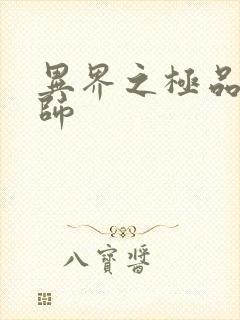 異界之極品
師
八寶醬